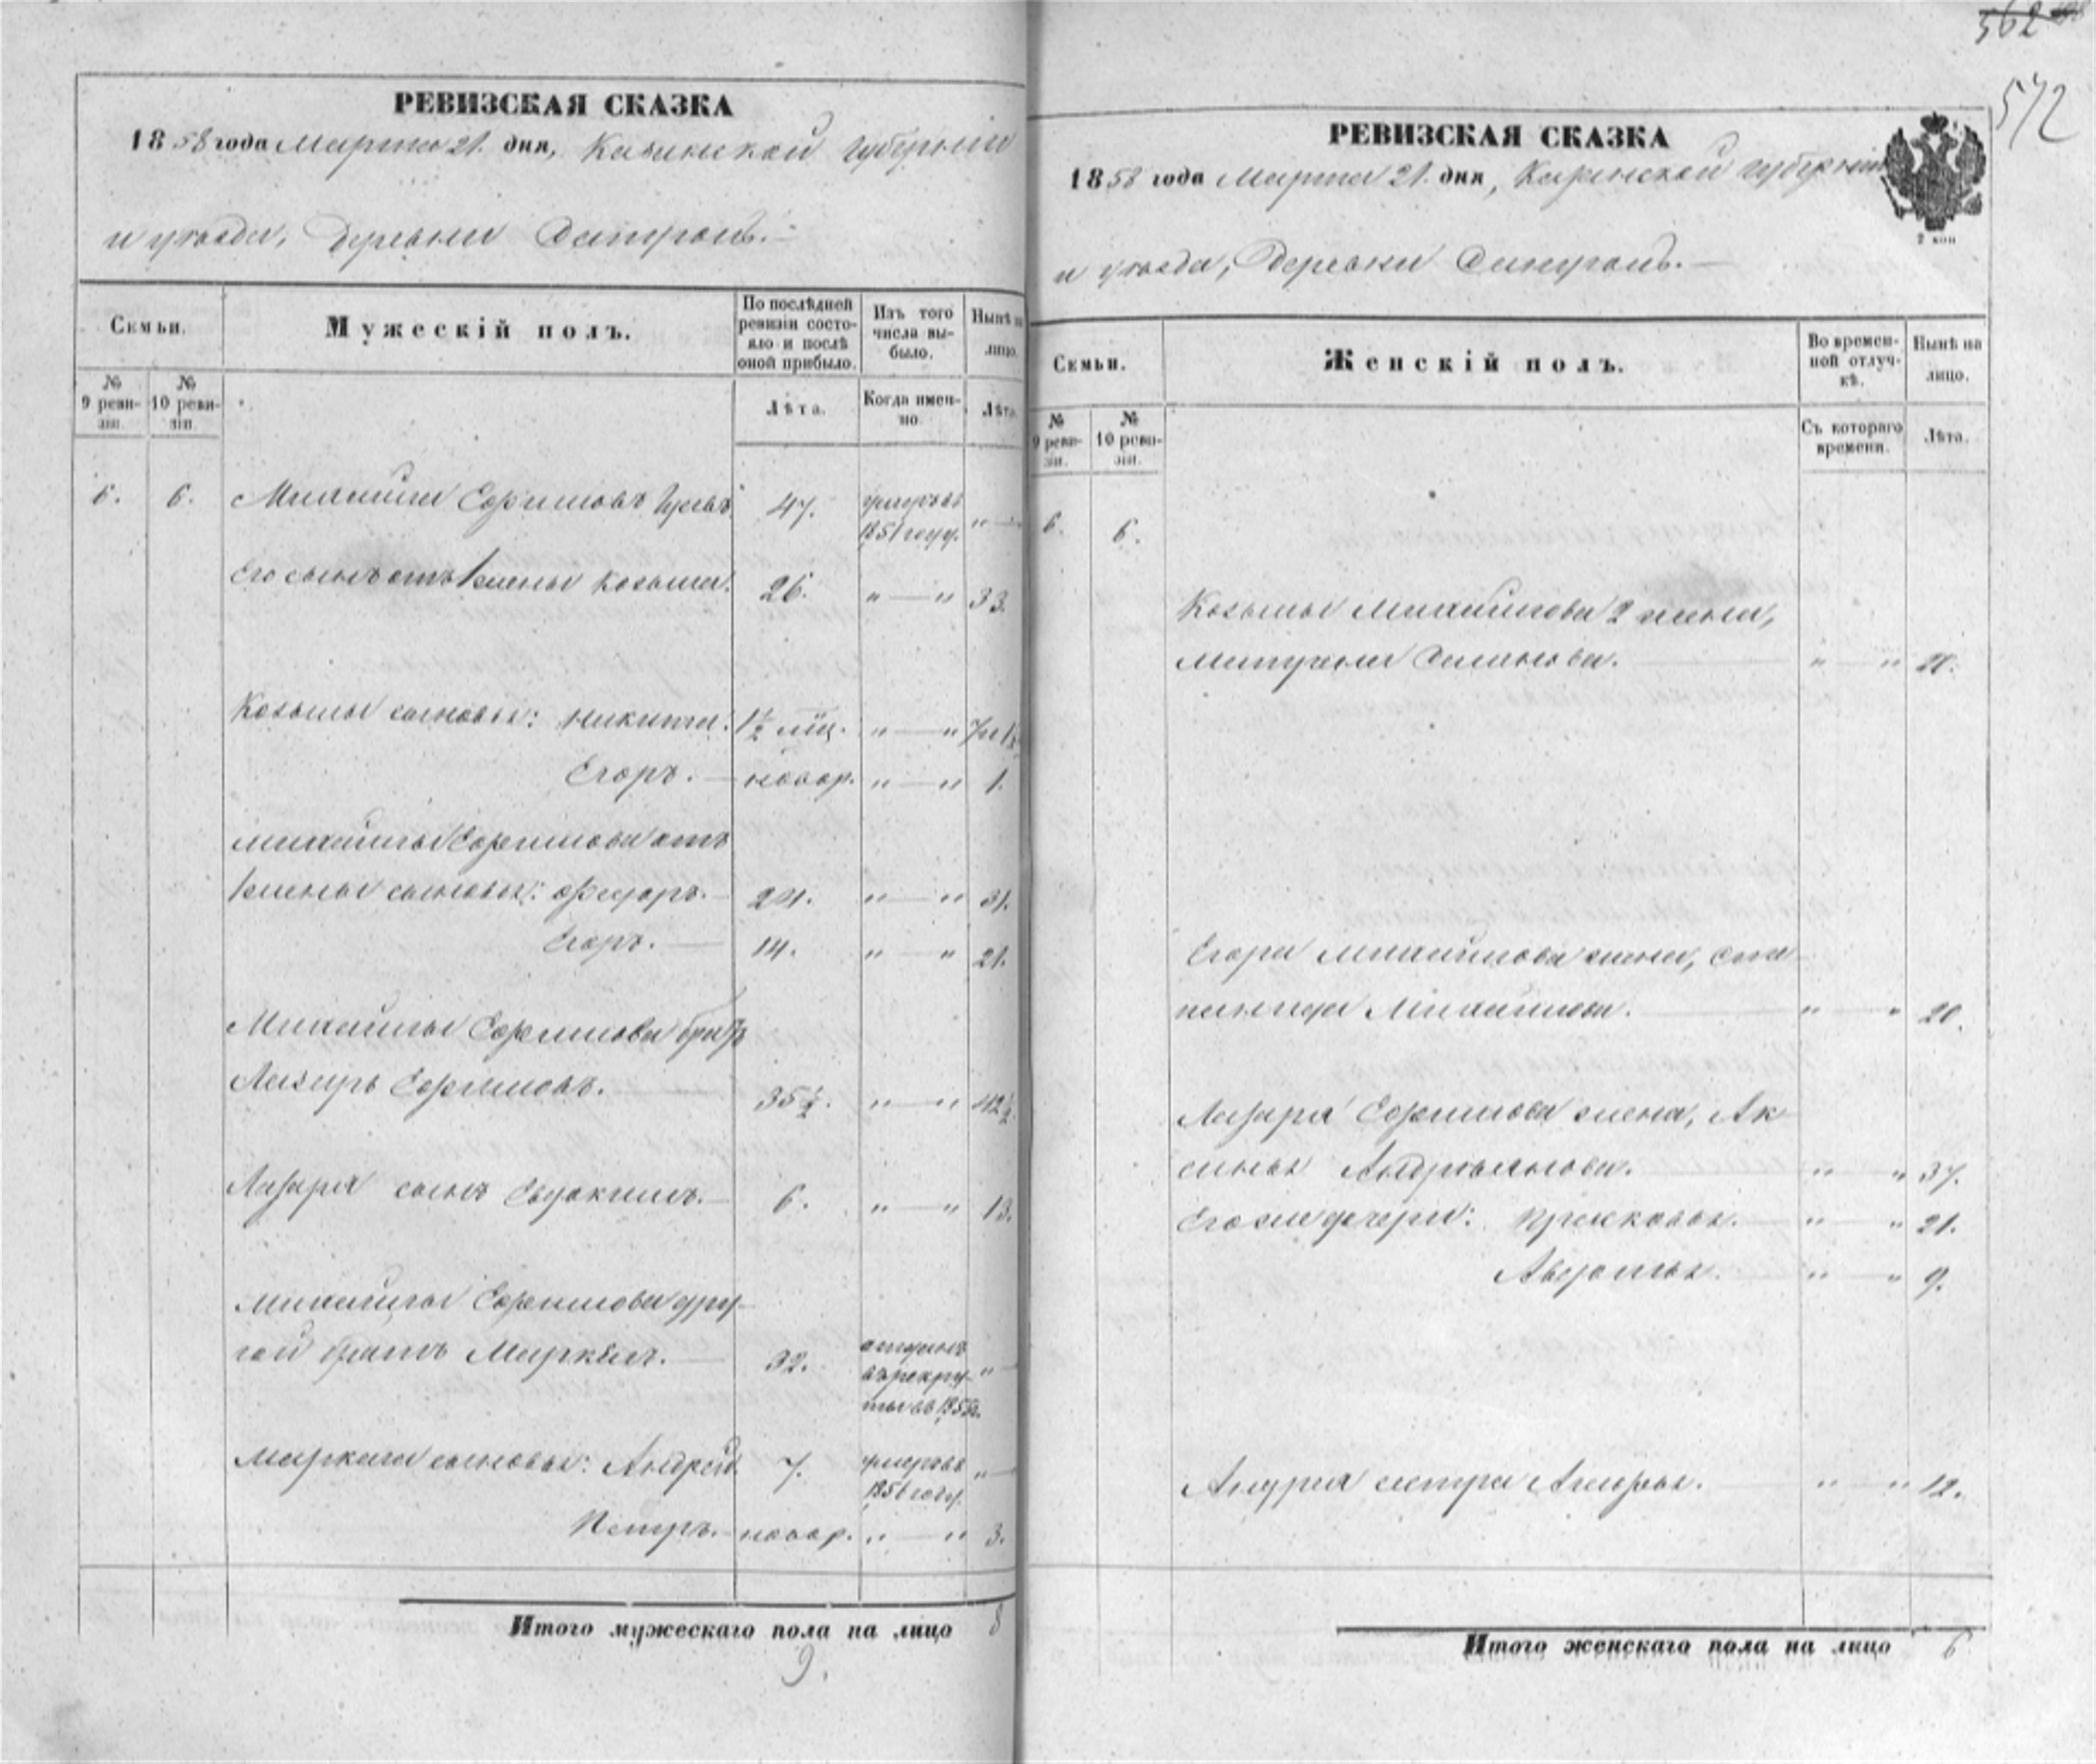 562
572
РЕВИЗСКАЯ СКАЗКА
1858 года Марта 21. дня, Казанской губерніи
и уѣзда, Деревни
Семьи.
Мужескій полъ.
По послѣдней ревизіи состояло и послѣ оной прибыло.
Изъ того числа выбыло.
Нынѣ на лицо.
№ 9 ревизіи.
№ 10 ревизіи.
Лѣта.
Когда именно.
Лѣта.
6. 6. Михайла Ефимовъ 47. умеръ въ 1851 году. "—
Его сынъ отъ 1 жены Козьма. 26. "—" 33.
Козьмы сыновья: Никита. 1½ мѣц. "—" 7 и 1½
Егоръ. — новор. "—" 1.
Михайлы Ефимова отъ
1 жены сыновья: Федоръ. — 24. "—" 31.
Егоръ. — 14. "—" 21.
Михайлы Ефимова братъ
Лазарь Ефимовъ. — 35½. "—" 42½.
Лазаря сынъ Евдокимъ. — 6. "—" 13.
Михайлы Ефимова дру-
гой братъ Маркелъ. — 32. отданъ въ рекруты въ "—
Маркела сыновья: Андрей 7. умеръ въ году. "—
Петръ. — новор. "—" 3.
Итого мужескаго пола на лицо 8
9.
РЕВИЗСКАЯ СКАЗКА
1858 года Марта 21. дня, Казанской губерніи
и уѣзда, Деревни
2 коп
Семьи.
Женскій полъ.
Во временной отлучкѣ.
Нынѣ на лицо.
№ 9 ревизіи.
№ 10 ревизіи.
Съ котораго времени.
Лѣта.
6. 6.
Козьмы Михайлова 2 жена,
Матрена "—"
Егора Михайлова жена, Сте-
панида Михайлова. — "—" 20.
Лазаря Ефимова жена, Ак-
синья Андреянова. "—" 37.
Его же дочери: Прасковья. — "—" 21.
Авдотья. "—" 9.
Андрея сестра — "—" 12.
Итого женскаго пола на лицо 6